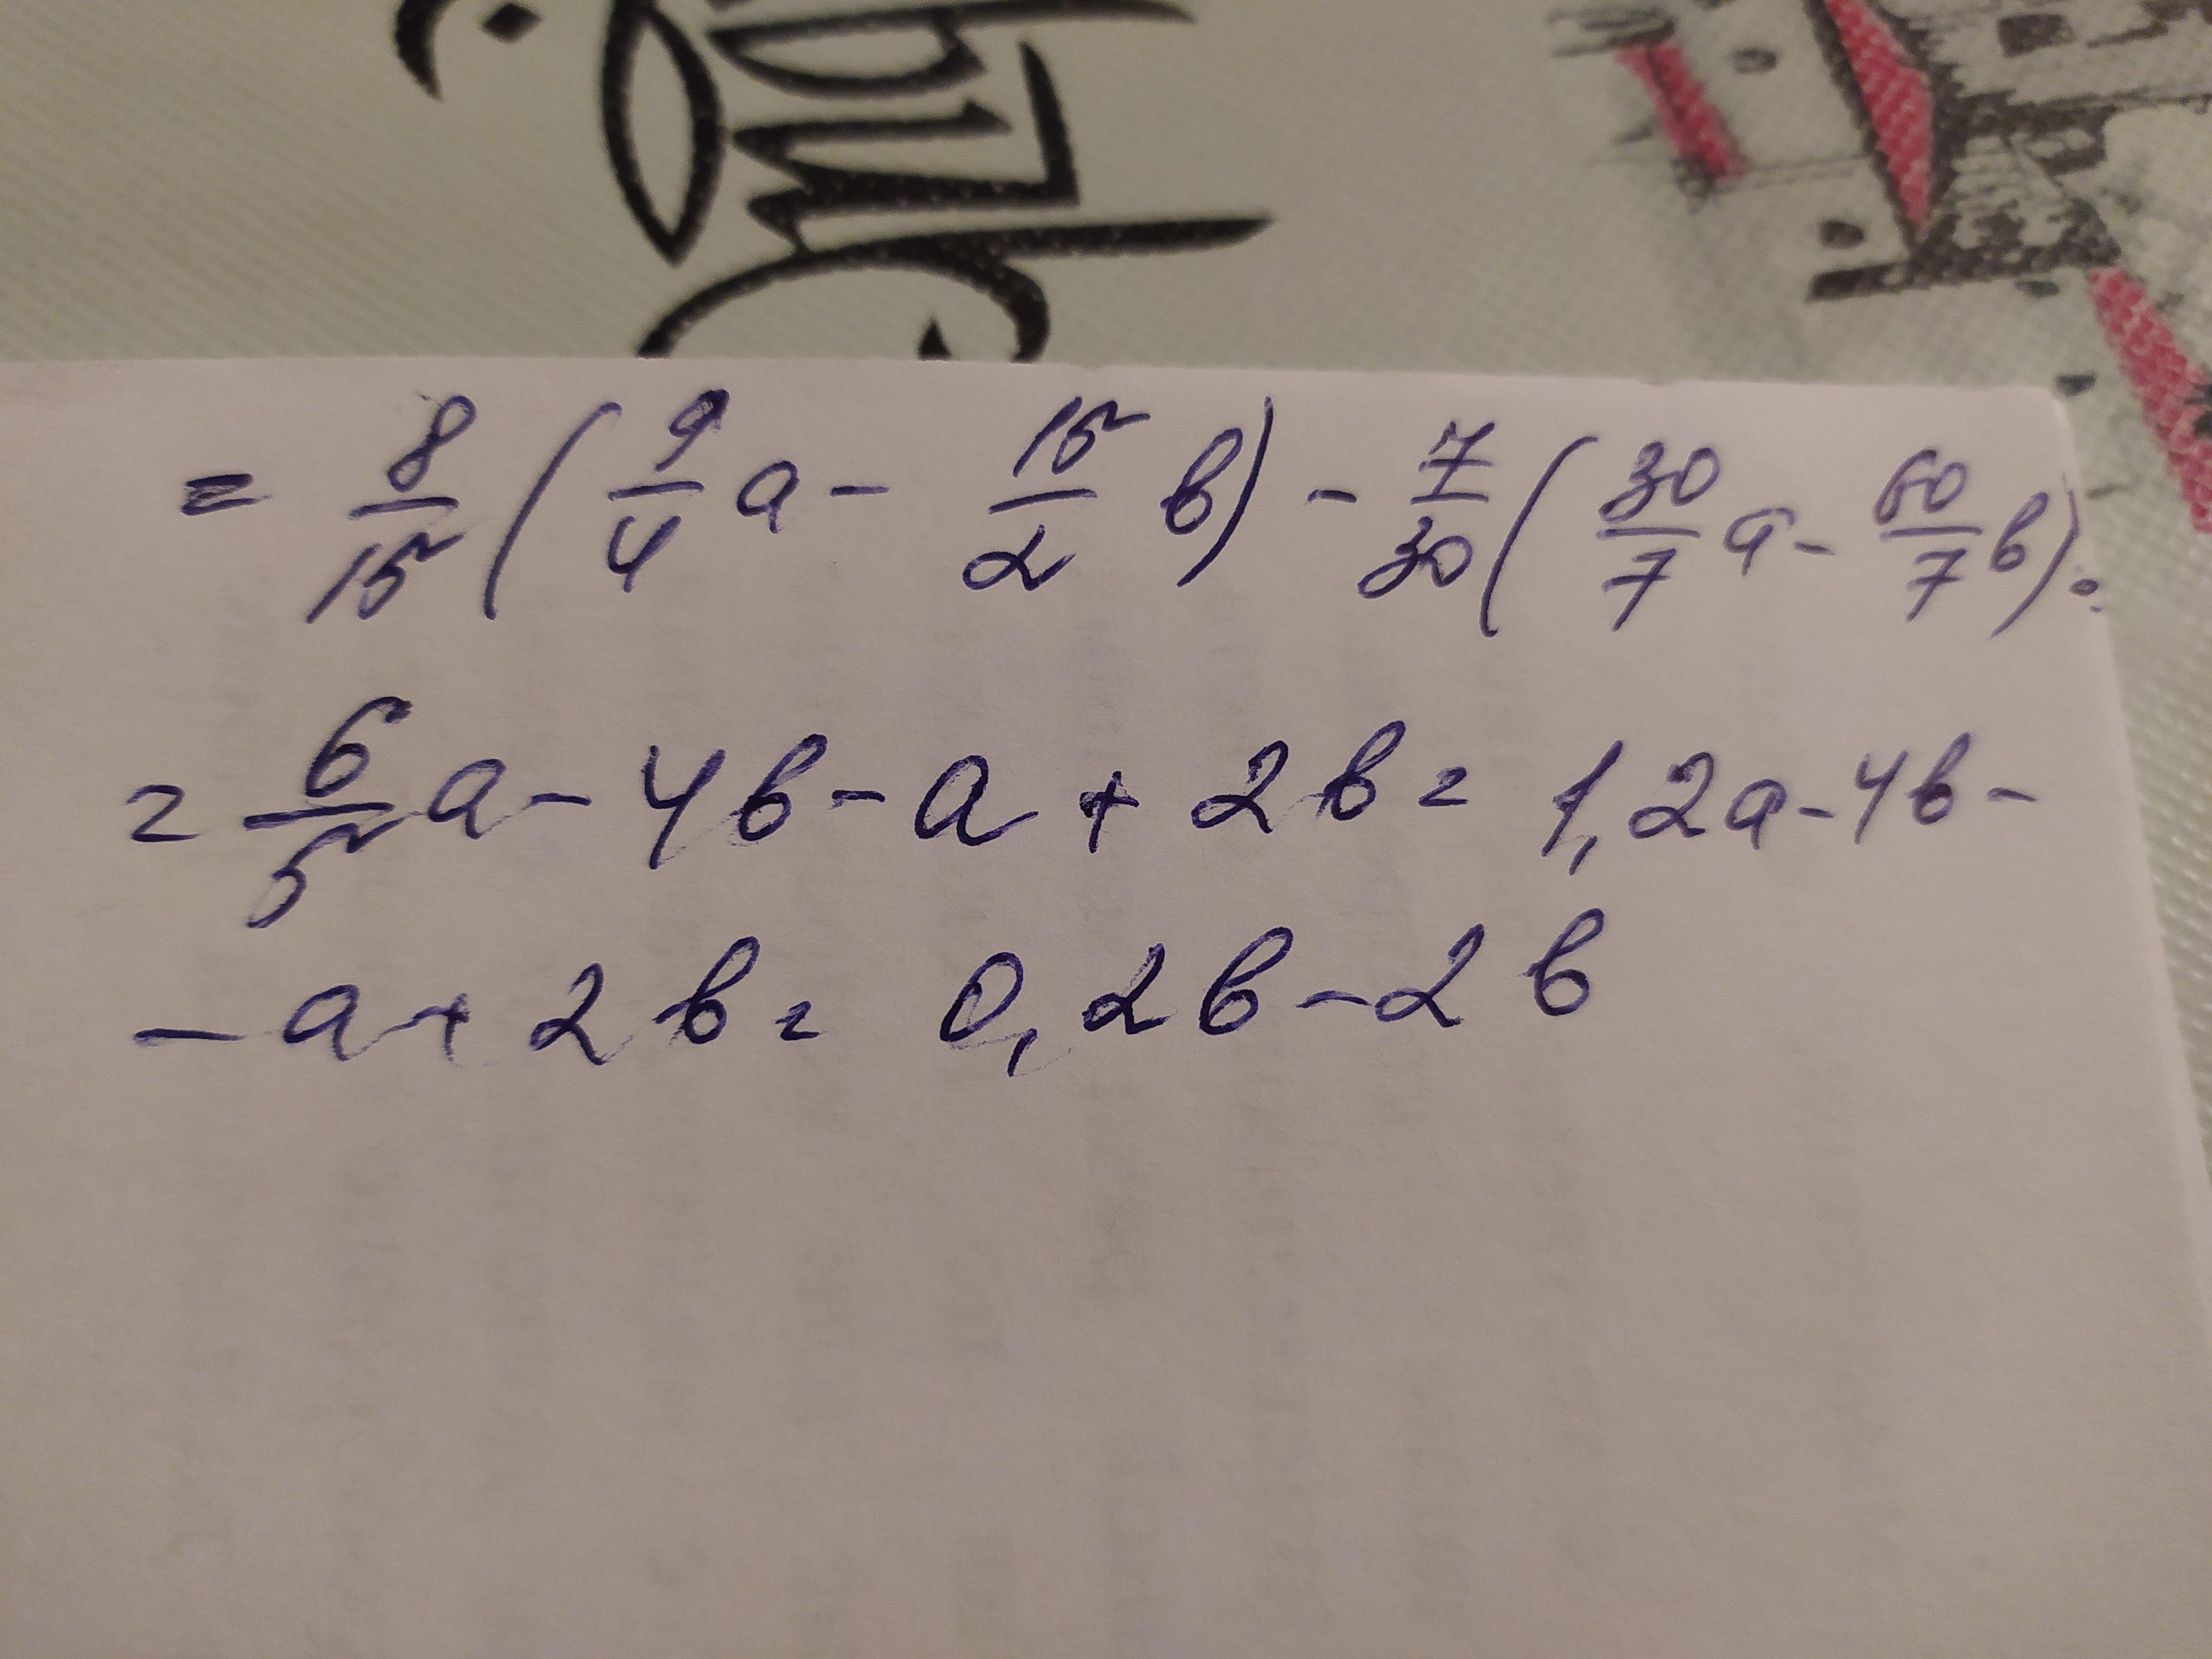 = 8/15 ( 9/4 a - 15/2 b ) - 7/30 ( 30/7 a - 60/7 b ) =
= 6/5 a - 4b - a + 2b = 1,2a - 4b -
- a + 2b = 0,2b - 2b